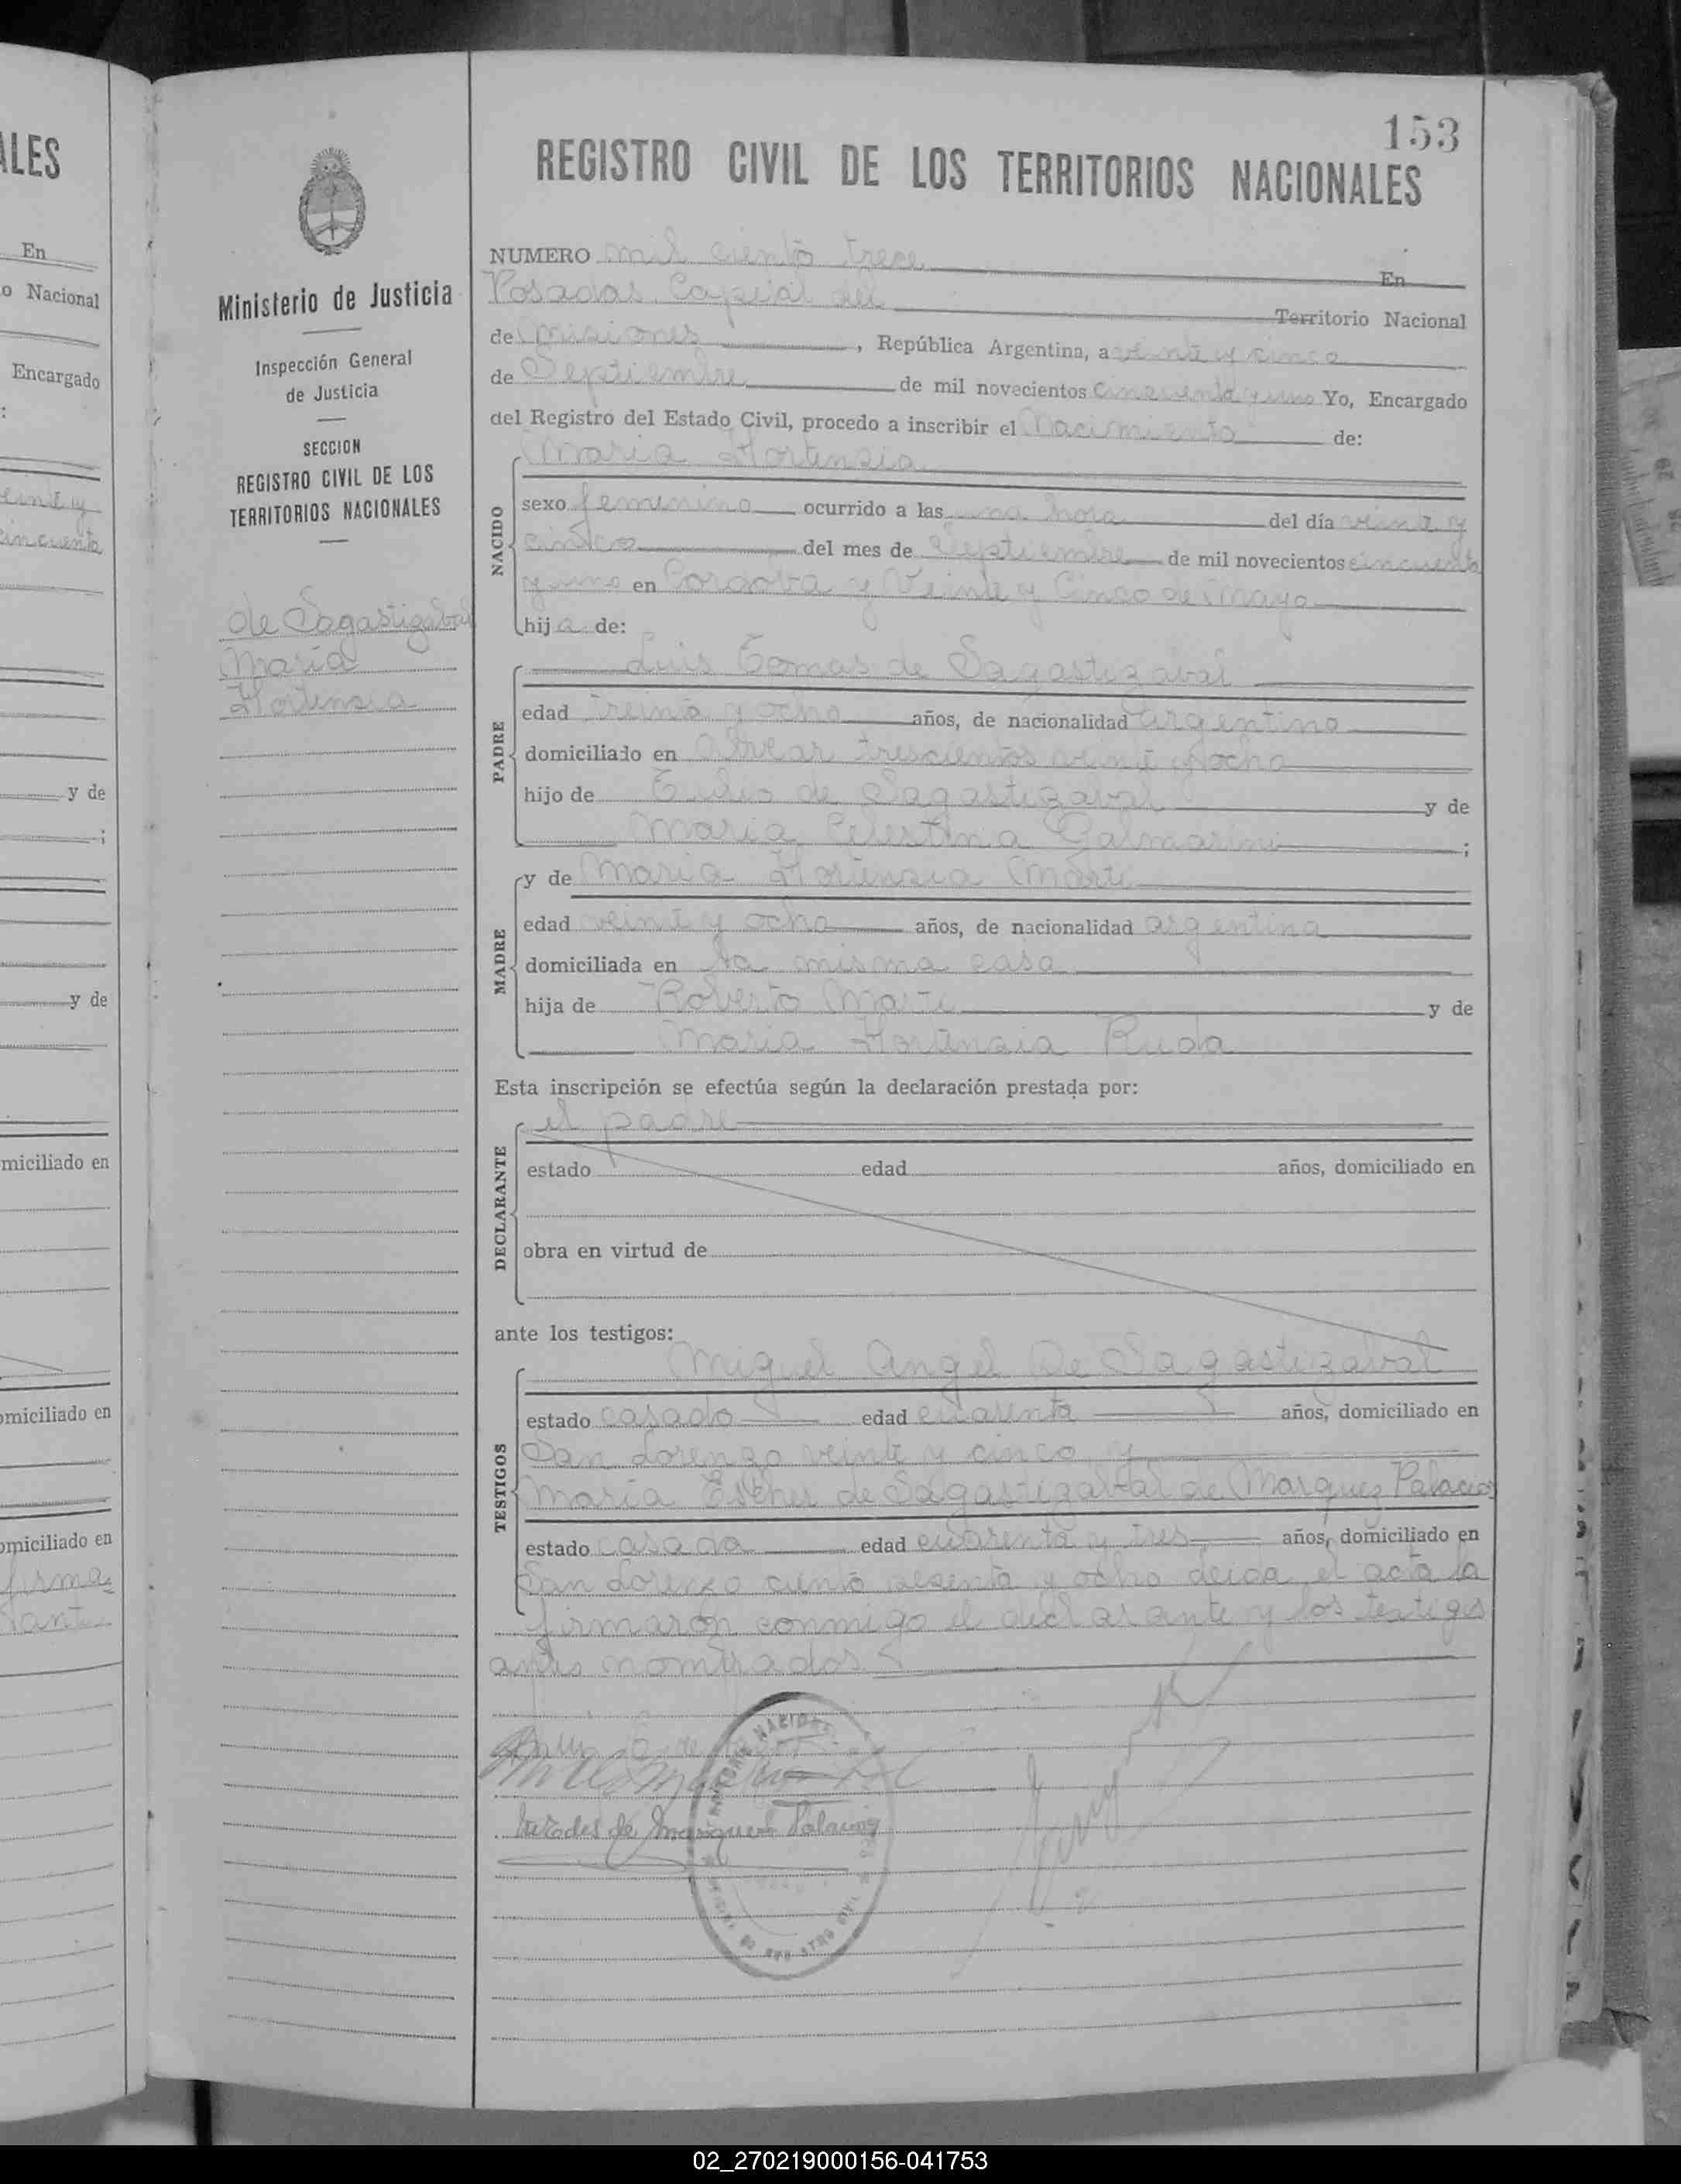 ALES
En
o Nacional
Encargado
:
einte y
cincuenta
y de
;
y de
miciliado en
omiciliado en
omiciliado en
firma
tante
Ministerio de Justicia
Inspección General
de Justicia
SECCION
REGISTRO CIVIL DE LOS
TERRITORIOS NACIONALES
de Sagastizabal
Maria
Hortensia
153
REGISTRO CIVIL DE LOS TERRITORIOS NACIONALES
NUMERO mil ciento trece En
Posadas Capital del Territorio Nacional
de Misiones, República Argentina, a veinte y cinco
de Septiembre de mil novecientos cincuenta y uno Yo, Encargado
del Registro del Estado Civil, procedo a inscribir el Nacimiento de:
NACIDO
Maria Hortensia
sexo femenino ocurrido a las una hora del día veinte y
cinco del mes de Septiembre de mil novecientos cincuenta
y uno en Cordova y Veinte y Cinco de Mayo
hija de:
PADRE
Luis Tomas de Sagastizabal
edad treinta y ocho años, de nacionalidad argentino
domiciliado en Alvear trescientos veinte y ocho
hijo de de Sagastizabal y de
Maria Celestina Galmarini;
MADRE
y de Maria Hortensia Marti
edad veinte y ocho años, de nacionalidad argentina
domiciliada en la misma casa
hija de Roberto Marti y de
Maria Hortensia Ruda
Esta inscripción se efectúa según la declaración prestada por:
DECLARANTE
el padre
estado edad años, domiciliado en
obra en virtud de
ante los testigos:
TESTIGOS
Miguel Angel De Sagastizabal
estado casado edad cuarenta años, domiciliado en
San Lorenzo veinte y cinco y
Maria Esther de Sagastizabal de Marquez Palacios
estado casada edad cuarenta y tres años, domiciliado en
San Lorenzo ciento sesenta y ocho el acta la
firmaron conmigo el declarante y los testigos
antes nombrados
de Marquez Palacios
02_270219000156-041753